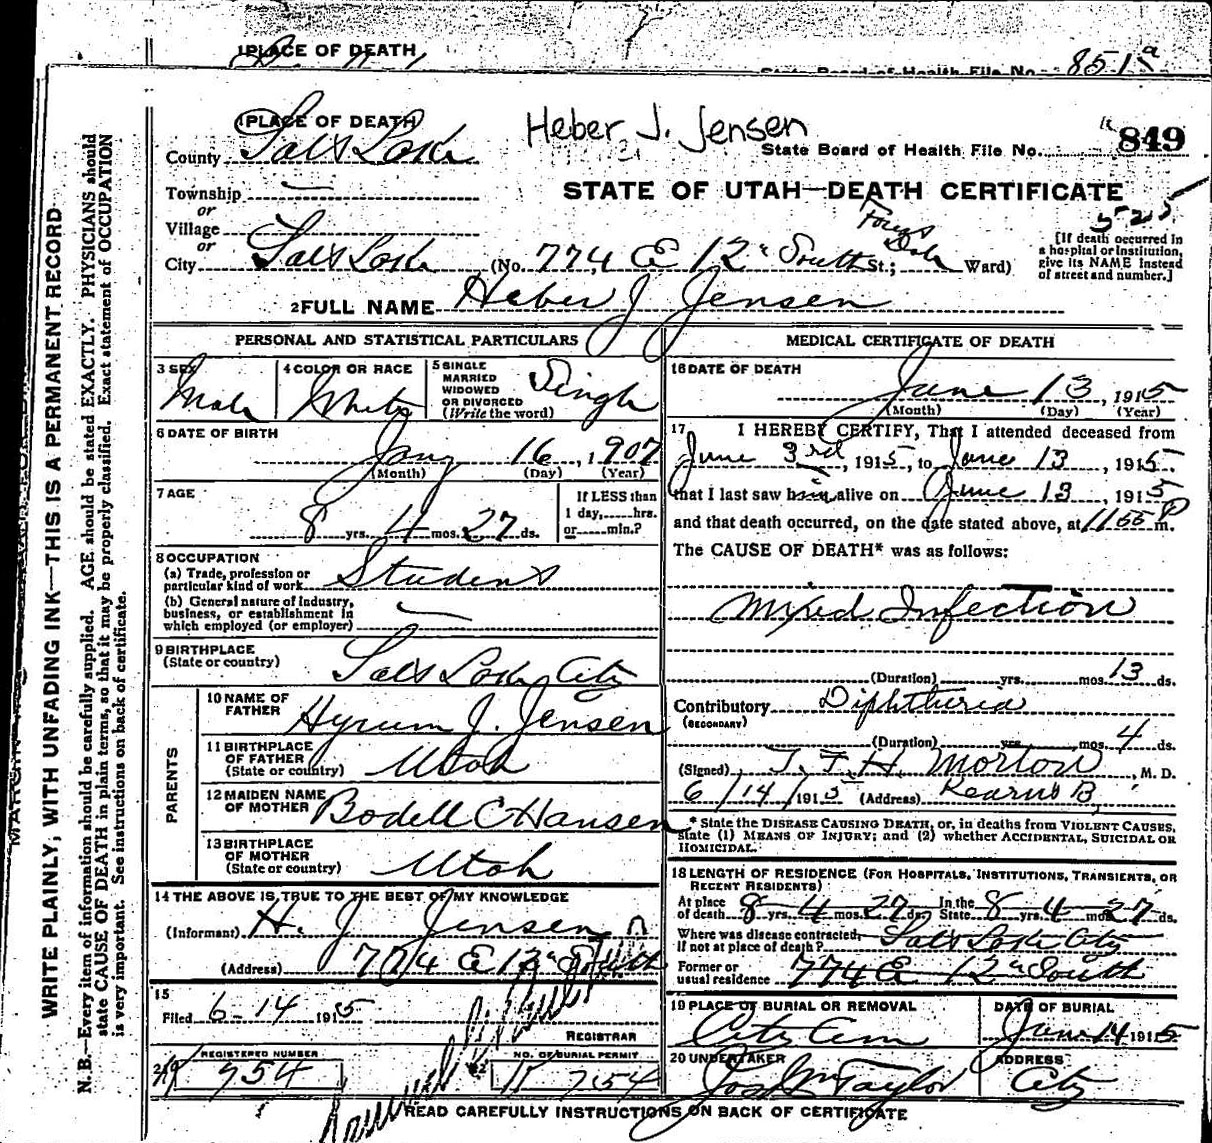 1 PLACE OF DEATH
State Board of Health File No. 851 a
1 PLACE OF DEATH
Heber J. Jensen
County Salt Lake
State Board of Health File No. 849
Township
or
STATE OF UTAH—DEATH CERTIFICATE
Village
or
525
City Salt Lake (No. 774 E 12" South St.; Ward)
[If death occurred in
a hospital or institution,
give its NAME instead
of street and number.]
2 FULL NAME Heber J Jensen
PERSONAL AND STATISTICAL PARTICULARS
3 SEX
Male
4 COLOR OR RACE
White
5 SINGLE
MARRIED
WIDOWED
OR DIVORCED
(Write the word)
Single
6 DATE OF BIRTH
Jany 16, 1907
(Month) (Day) (Year)
7 AGE
8 yrs. 4 mos. 27 ds.
If LESS than
1 day, hrs.
or min.?
8 OCCUPATION
(a) Trade, profession or
particular kind of work Student
(b) General nature of industry,
business, or establishment in
which employed (or employer)
9 BIRTHPLACE
(State or country) Salt Lake City
PARENTS
10 NAME OF
FATHER Hyrum J. Jensen
11 BIRTHPLACE
OF FATHER
(State or country) Utah
12 MAIDEN NAME
OF MOTHER Bodell C Hansen
13 BIRTHPLACE
OF MOTHER
(State or country) Utah
14 THE ABOVE IS TRUE TO THE BEST OF MY KNOWLEDGE
(Informant) H. J Jensen
(Address) 774 E 12" South
15
Filed 6-14 1915
REGISTRAR
REGISTERED NUMBER
954
NO. OF BURIAL PERMIT
754
MEDICAL CERTIFICATE OF DEATH
16 DATE OF DEATH
June 13, 1915
(Month) (Day) (Year)
17 I HEREBY CERTIFY, That I attended deceased from
June 3rd, 1915, to June 13, 1915.
that I last saw him alive on June 13, 1915
and that death occurred, on the date stated above, at 11 55 P m.
The CAUSE OF DEATH* was as follows:
Mixed Infection
(Duration) yrs. mos. 13 ds.
Contributory Diphtheria
(SECONDARY)
(Duration) yrs. mos. 4 ds.
(Signed) T. F. H. Morton, M. D.
6/14/1915 (Address) Kearns B.
* State the DISEASE CAUSING DEATH, or, in deaths from VIOLENT CAUSES,
state (1) MEANS OF INJURY; and (2) whether ACCIDENTAL, SUICIDAL OR
HOMICIDAL.
18 LENGTH OF RESIDENCE (FOR HOSPITALS, INSTITUTIONS, TRANSIENTS, OR
RECENT RESIDENTS)
At place In the
of death 8 yrs. 4 mos. 27 ds. State 8 yrs. 4 mos. 27 ds.
Where was disease contracted,
if not at place of death? Salt Lake City
Former or
usual residence 774 E 12" South
19 PLACE OF BURIAL OR REMOVAL
City Cem
DATE OF BURIAL
June 14 1915
20 UNDERTAKER
Jos Wm Taylor
ADDRESS
City
READ CAREFULLY INSTRUCTIONS ON BACK OF CERTIFICATE
WRITE PLAINLY, WITH UNFADING INK—THIS IS A PERMANENT RECORD
N. B.—Every item of information should be carefully supplied. AGE should be stated EXACTLY. PHYSICIANS should
state CAUSE OF DEATH in plain terms, so that it may be properly classified. Exact statement of OCCUPATION
is very important. See instructions on back of certificate.